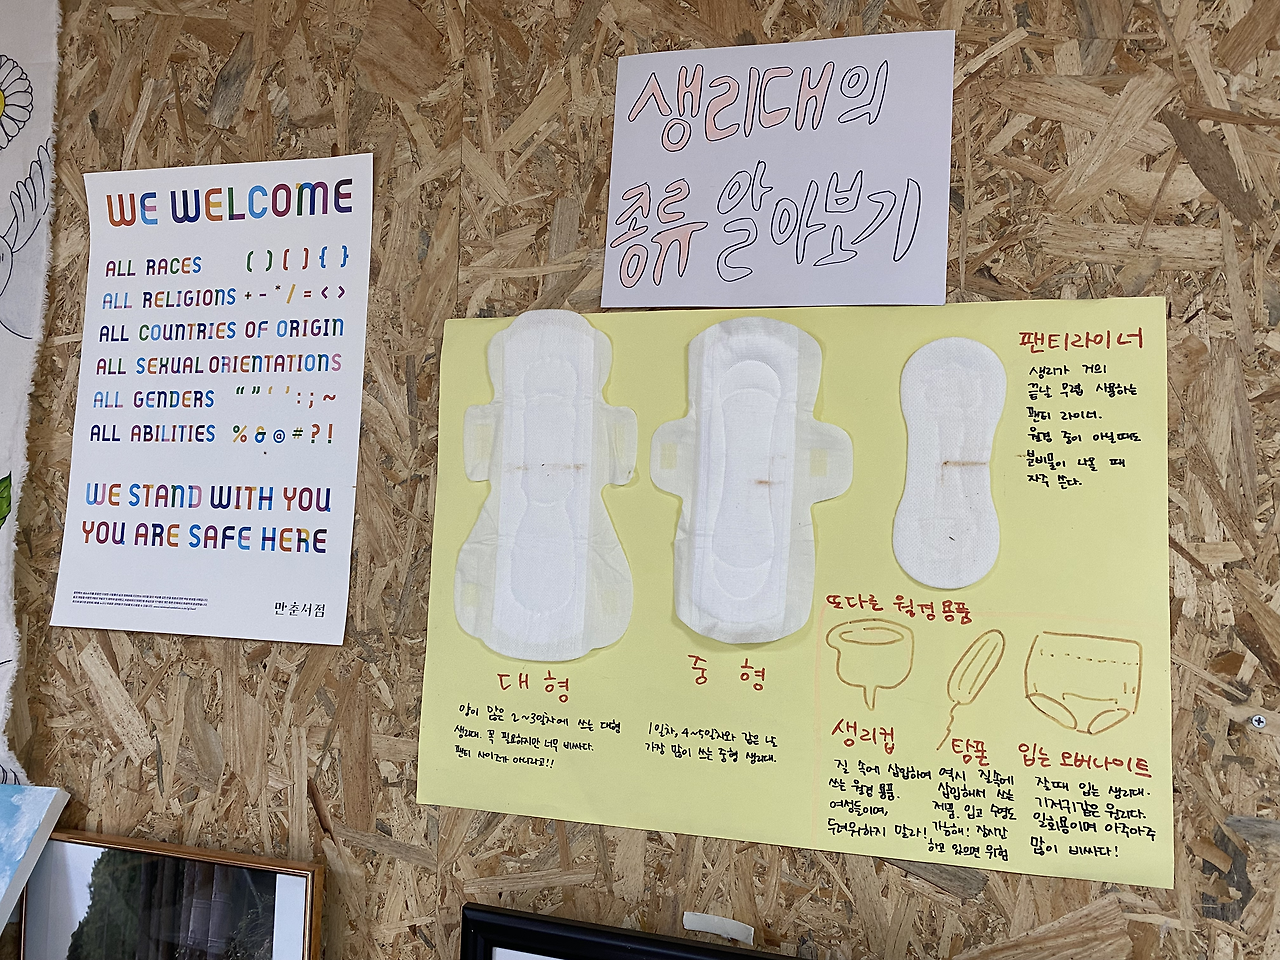 WE WELCOME
ALL RACES ( ) [ ] { }
ALL RELIGIONS + - * / = < >
ALL COUNTRIES OF ORIGIN
ALL SEXUAL ORIENTATIONS
ALL GENDERS “ ” ‘ ’ : ; ~
ALL ABILITIES % & @ # ? !
WE STAND WITH YOU
YOU ARE SAFE HERE
만춘서점
생리대의
종류 알아보기
대형
양이 많은 2~3일차에 쓰는 대형
생리대. 꼭 필요하지만 너무 비싸다.
팬티 사이즈가 아니라고!!
중형
1일차, 4~5일차와 같은 날
가장 많이 쓰는 중형 생리대.
팬티라이너
생리가 거의
끝날 무렵 사용하는
팬티 라이너.
월경 중이 아닐 때도
분비물이 나올 때
자주 쓴다.
또다른 월경용품
생리컵
질 속에 삽입하여
쓰는 월경 용품.
여성들이여,
두려워하지 말라!
탐폰
역시 질속에
삽입해서 쓰는
제품. 입고 수영도
가능해! 장시간
하고 있으면 위험
입는 오버나이트
잘때 입는 생리대.
기저귀같은 원리다.
일회용이며 아주아주
많이 비싸다!